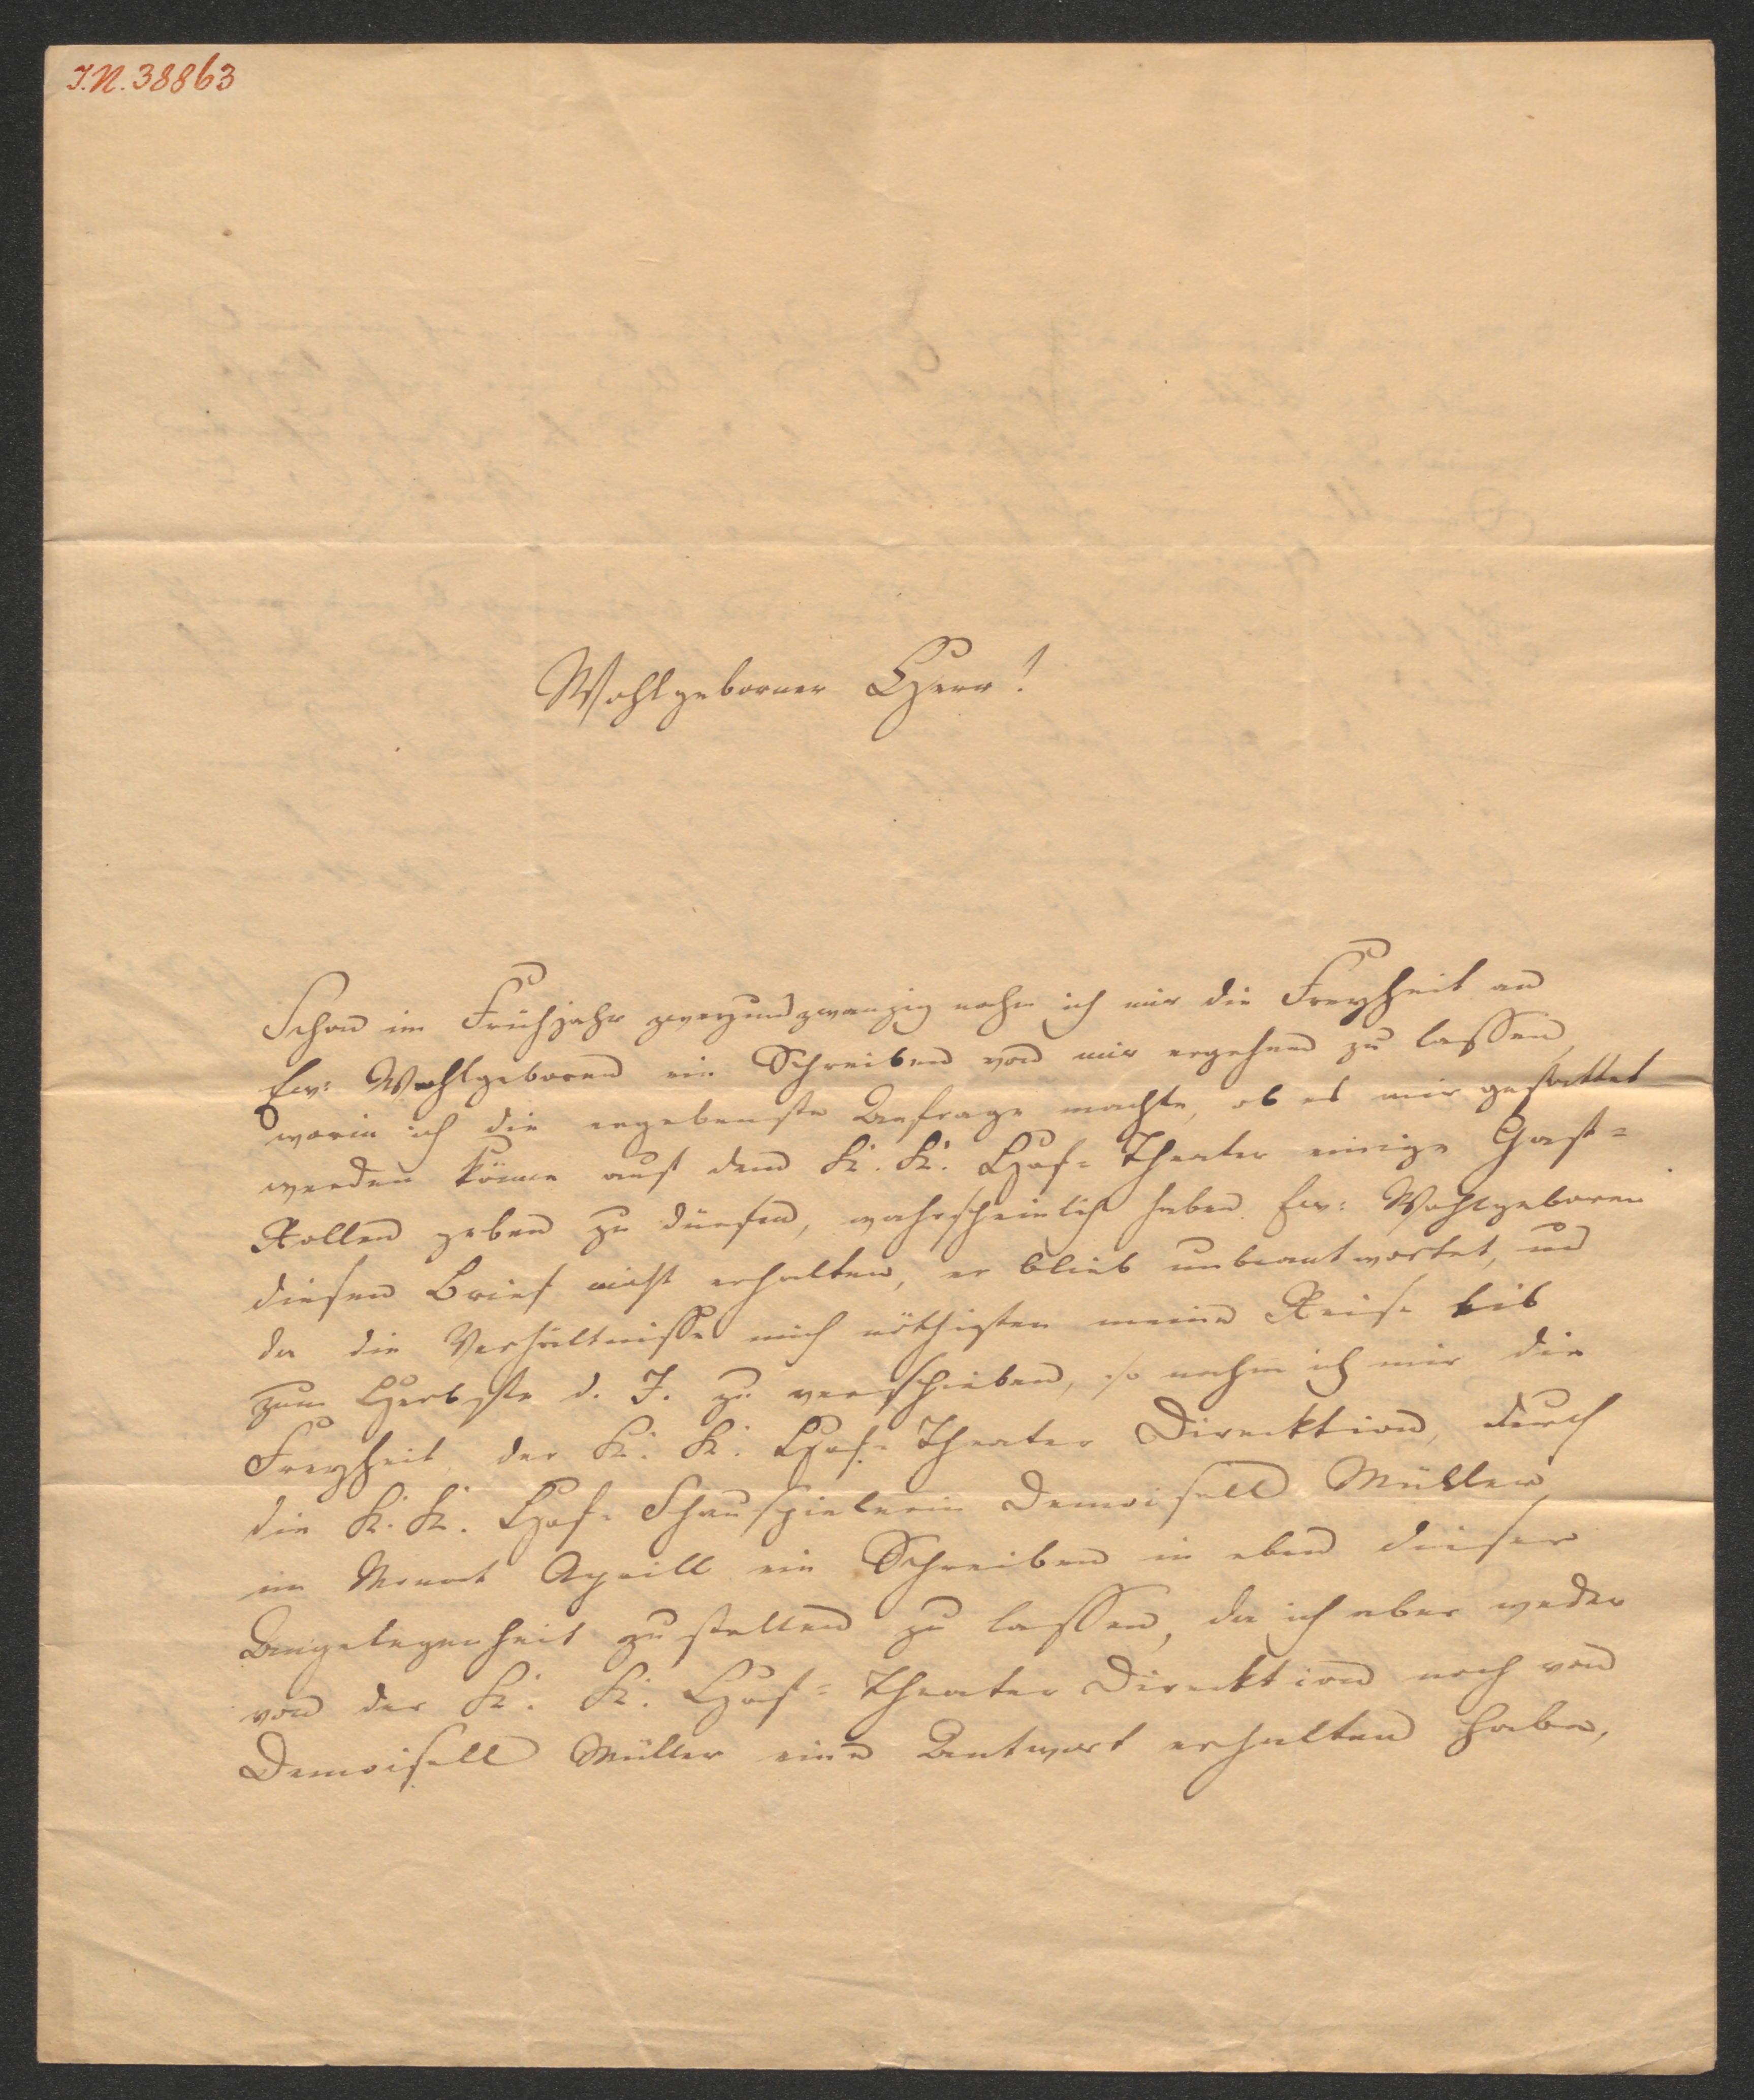 J.N. 38863
Wohlgeborner Herr!
Schon im Frühjahr zweyundzwanzig nahm ich mir die Freyheit an
Ew: Wohlgeboren ein Schreiben von mir ergehen zu lassen,
worin ich die ergebenste Anfrage machte, ob es mir gestattet
werden könne auf dem K. K. Hof-Theater einige Gast-
Rollen geben zu dürfen, wahrscheinlich haben Ew: Wohlgeboren
diesen Brief nicht erhalten, er blieb unbeantwortet, und
da die Verhältnisse mich nöthigten meine Reise bis
zum Herbste d. J. zu verschieben, so nahm ich mir die
Freyheit der K. K. Hof-Theater Direcktion, durch
die K. K. Hof-Schauspielerin Demoisell Müller
im Monat Aprill ein Schreiben in eben dieser
Angelegenheit zustellen zu lassen, da ich aber weder
von der K. K. Hof-Theater Direcktion noch von
Demoisell Müller eine Antwort erhalten habe,